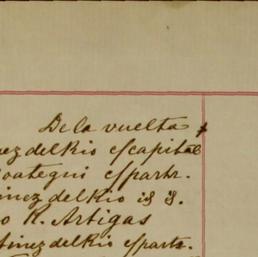 De la vuelta
nez del Rio c/ capital
oategui c/ partr.
inez del Rio id id.
o R. Artigas
tinez del Rio c/ parte.